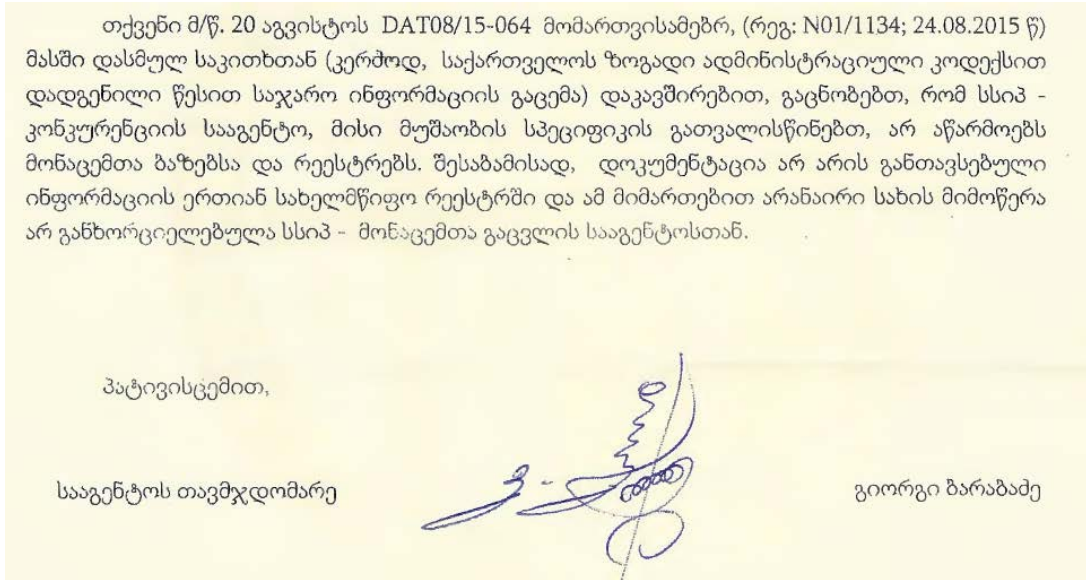 თქვენი მ/წ. 20 აგვისტოს DAT08/15-064 მომართვისამებრ, (რეგ: N01/1134; 24.08.2015 წ)
მასში დასმულ საკითხთან (კერძოდ, საქართველოს ზოგადი ადმინისტრაციული კოდექსით
დადგენილი წესით საჯარო ინფორმაციის გაცემა) დაკავშირებით, გაცნობებთ, რომ სსიპ -
კონკურენციის სააგენტო, მისი მუშაობის სპეციფიკის გათვალისწინებთ, არ აწარმოებს
მონაცემთა ბაზებსა და რეესტრებს. შესაბამისად, დოკუმენტაცია არ არის განთავსებული
ინფორმაციის ერთიან სახელმწიფო რეესტრში და ამ მიმართებით არანაირი სახის მიმოწერა
არ განხორციელებულა სსიპ - მონაცემთა გაცვლის სააგენტოსთან.
პატივისცემით,
სააგენტოს თავმჯდომარე გიორგი ბარაბაძე